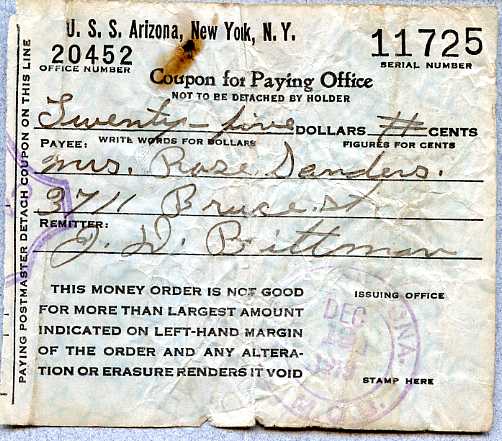 U. S. S. Arizona, New York, N. Y.
20452
OFFICE NUMBER
11725
SERIAL NUMBER
Coupon for Paying Office
NOT TO BE DETACHED BY HOLDER
Twenty-five DOLLARS CENTS
WRITE WORDS FOR DOLLARS FIGURES FOR CENTS
PAYEE:
Mrs. Rose Sanders.
3711 Bruce. st.
REMITTER:
J. D. Bittman
THIS MONEY ORDER IS NOT GOOD
FOR MORE THAN LARGEST AMOUNT
INDICATED ON LEFT-HAND MARGIN
OF THE ORDER AND ANY ALTERA-
TION OR ERASURE RENDERS IT VOID
ISSUING OFFICE
DEC
STAMP HERE
PAYING POSTMASTER DETACH COUPON ON THIS LINE